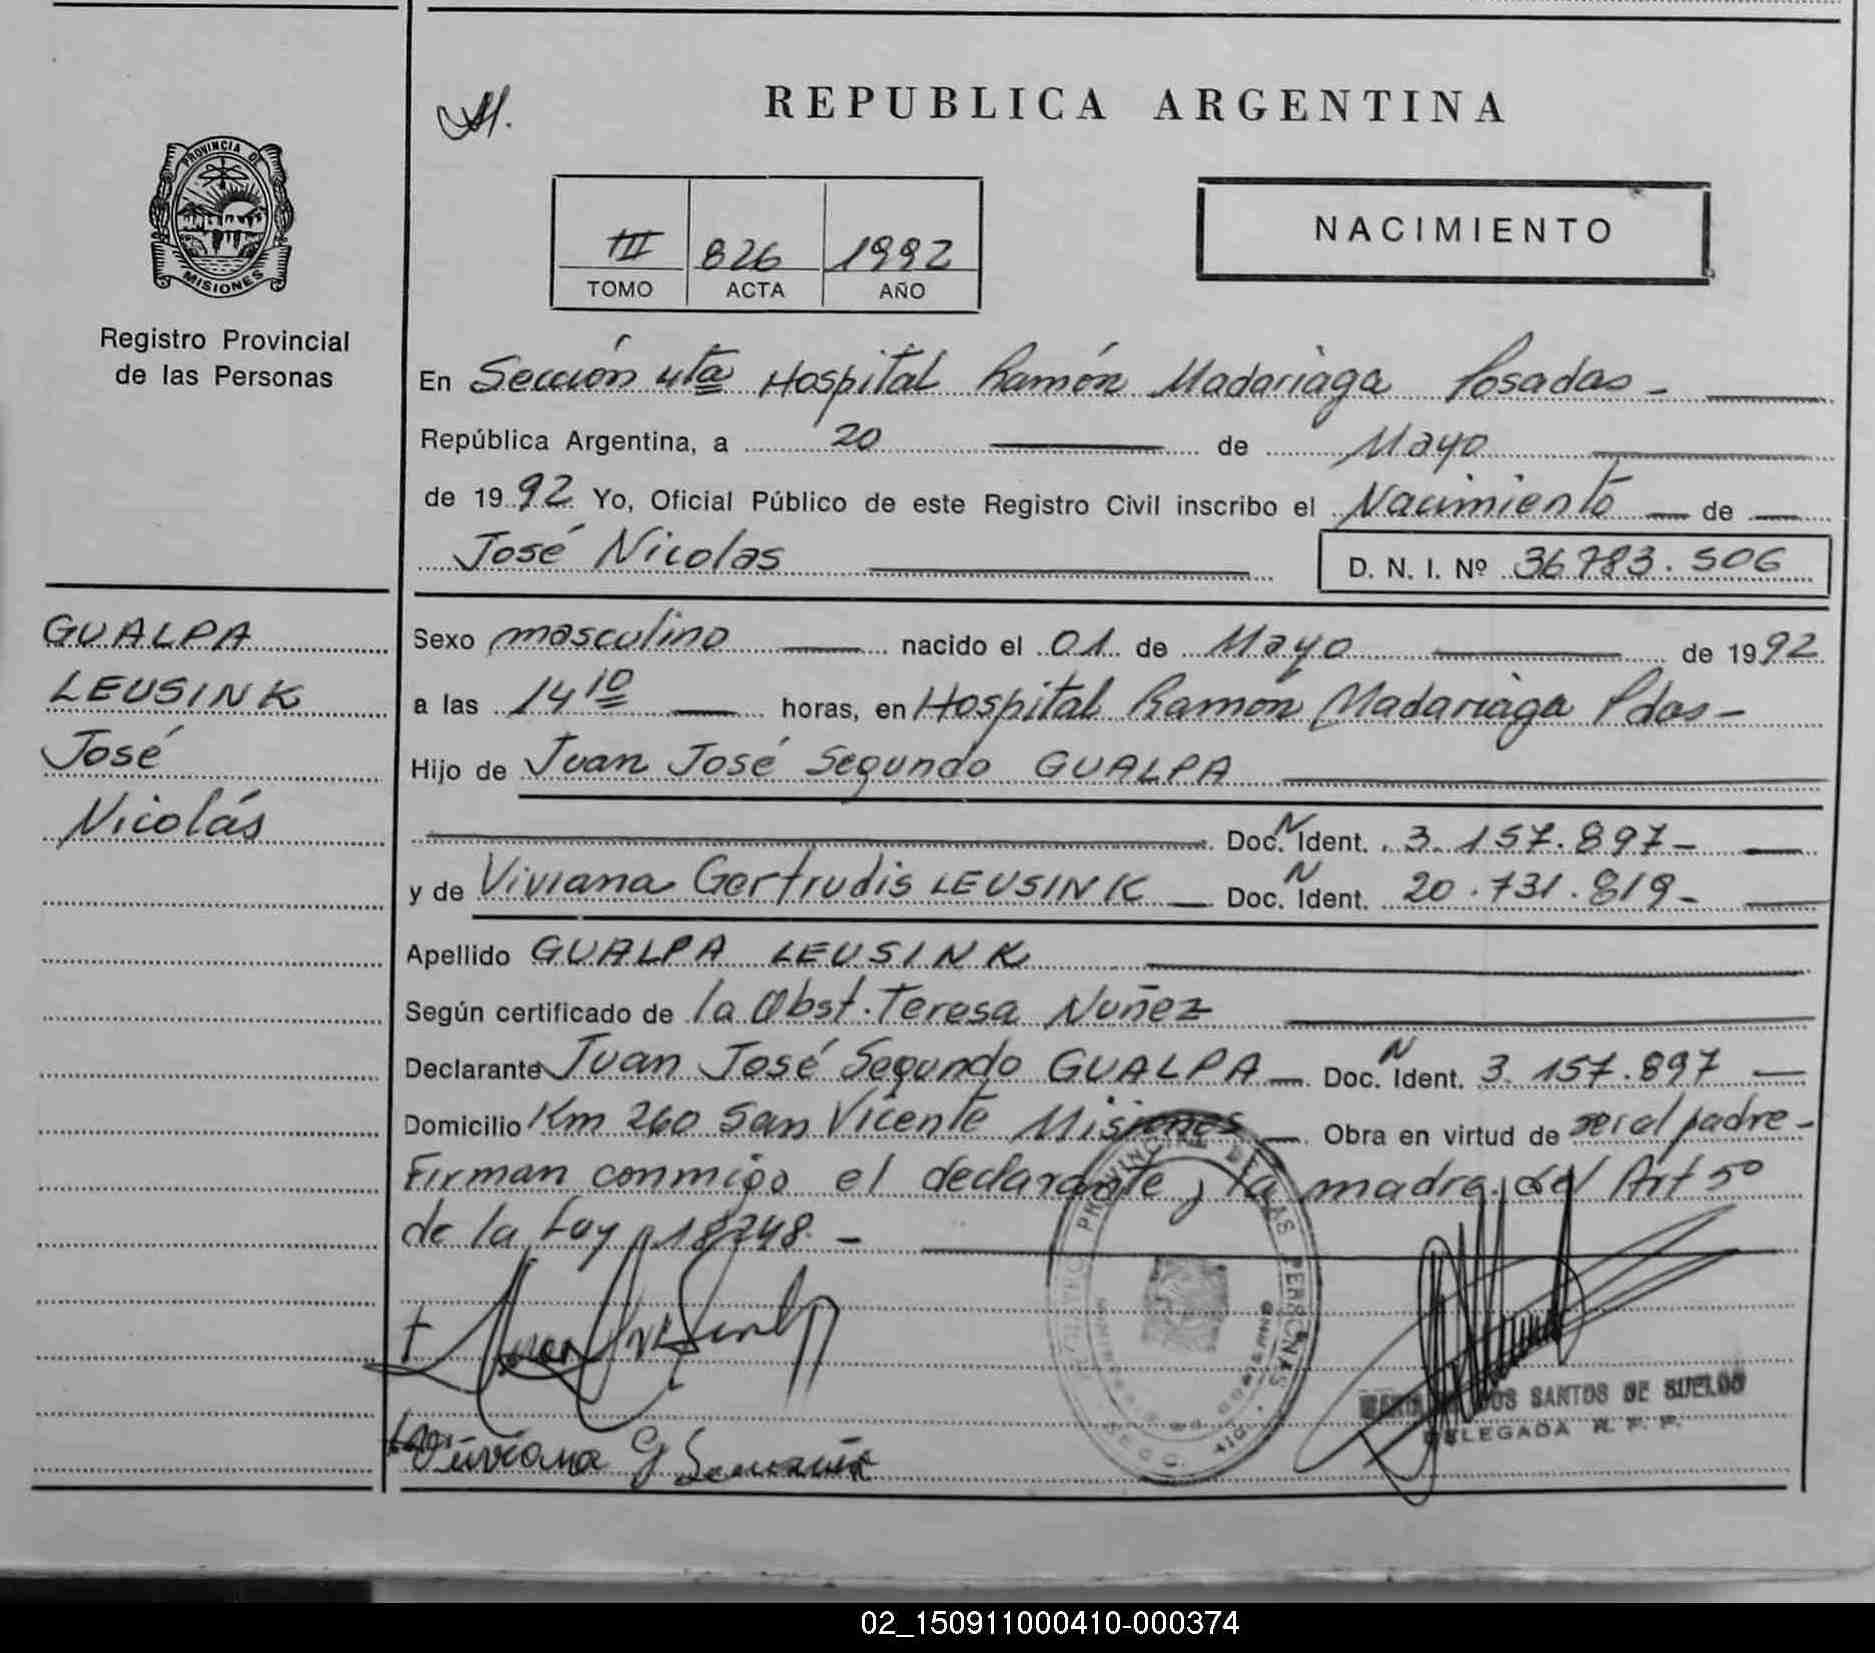 REPUBLICA ARGENTINA
PROVINCIA DE
MISIONES
Registro Provincial
de las Personas
III 826 1992
TOMO ACTA AÑO
NACIMIENTO
En Sección 4ta Hospital Ramón Madariaga Posadas -
República Argentina, a 20 de Mayo
de 1992 Yo, Oficial Público de este Registro Civil inscribo el Nacimiento de
José Nicolas D. N. I. Nº 36.783.506
GUALPA
LEUSINK
José
Nicolás
Sexo masculino nacido el 01 de Mayo de 1992
a las 14 10 horas, en Hospital Ramón Madariaga Pdas -
Hijo de Juan José Segundo GUALPA
Doc. N Ident. 3.157.897 -
y de Viviana Gertrudis LEUSINK Doc. N Ident. 20.731.819 -
Apellido GUALPA LEUSINK
Según certificado de la Obst. Teresa Nuñez
Declarante Juan José Segundo GUALPA Doc. N Ident. 3.157.897
Domicilio Km 260 San Vicente Misiones Obra en virtud de ser el padre -
Firman conmigo el declarante y la madre Art 5º
de la Ley 18248. -
Viviana G
SANTOS DE SUELDO
DELEGADA R. P. P.
02_150911000410-000374